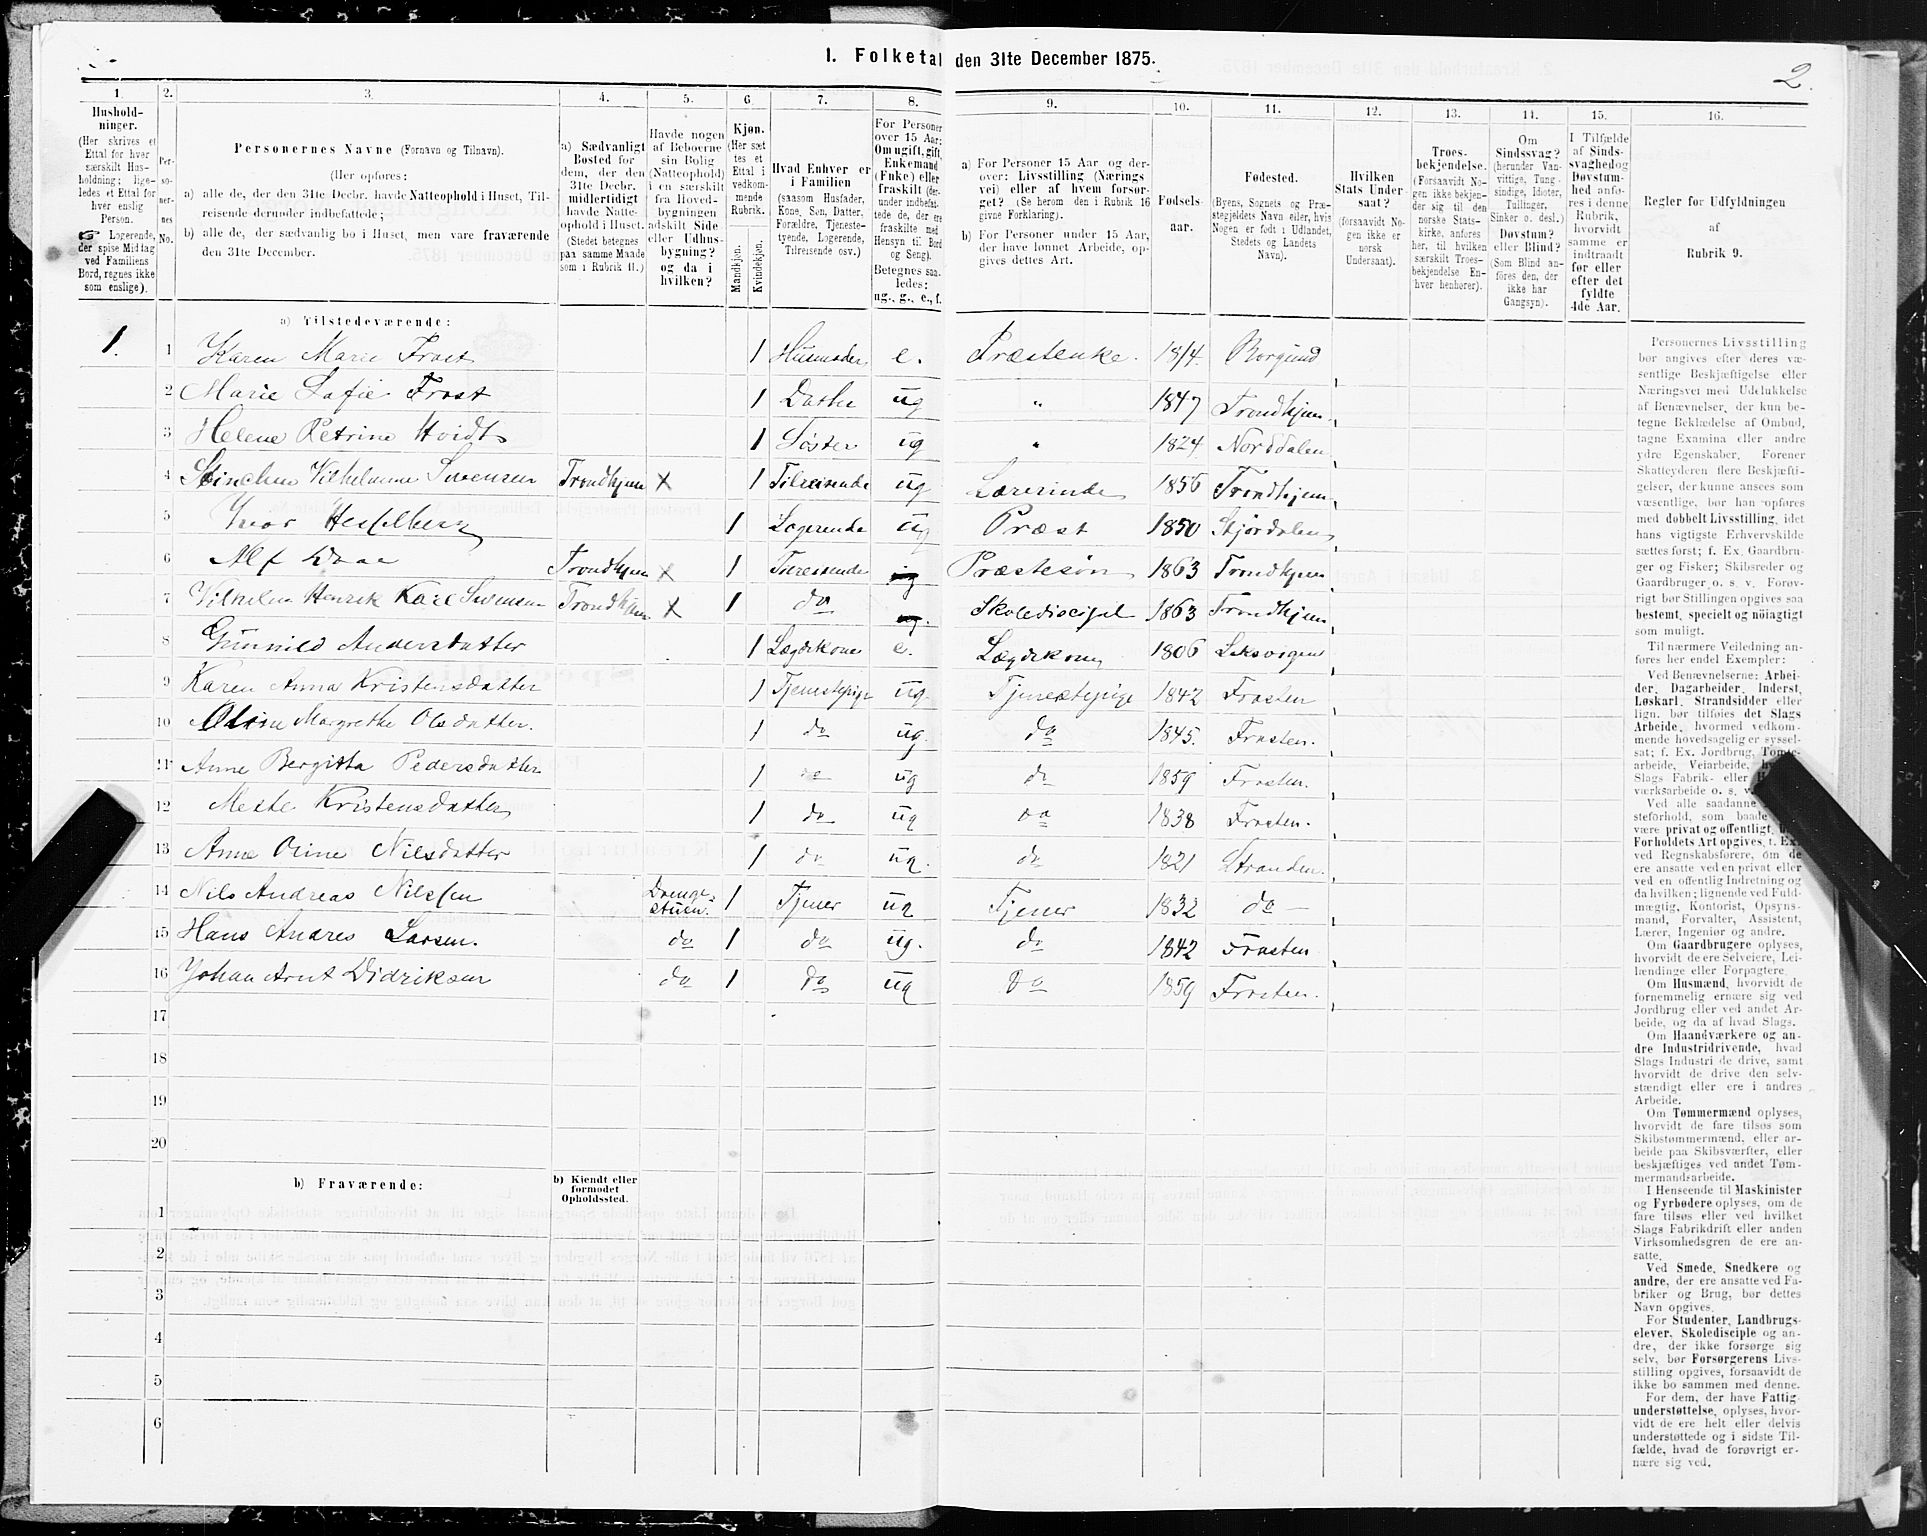 1. Folketal den 31te December 1875.
2.
1. 2. 3. 4. 5. 6. 7. 8. 9. 10. 11. 12. 13. 14. 15. 16.
Hushold-
ninger.
(Her skrives et
Ettal for hver
særskilt Hus-
holdning; lige-
ledes et Ettal for
hver enslig
Person.
☞ Logerende,
der spise Middag
ved Familiens
Bord, regnes ikke
som enslige).
Per-
so-
ner-
nes
No.
Personernes Navne (Fornavn og Tilnavn).
(Her opføres:
a) alle de, der den 31te Decbr. havde Natteophold i Huset, Til-
reisende derunder indbefattede;
b) alle de, der sædvanlig bo i Huset, men vare fraværende
den 31te December.
a) Sædvanligt
Bosted for
dem, der den
31te Decbr.
midlertidigt
havde Natte-
ophold i Huset.
(Stedet betegnes
paa samme Maade
som i Rubrik 11.)
Havde nogen
af Beboerne
sin Bolig
(Natteophold)
i en særskilt
fra Hoved-
bygningen
adskilt Side-
eller Udhus-
bygning?
og da i
hvilken?
Kjøn.
(Her sæt
tes et
Ettal i
vedkom-
mende
Rubrik.
Mandkjøn.
Kvindekjøn.
Hvad Enhver er
i Familien
(saasom Husfader,
Kone, Søn, Datter,
Forældre, Tjeneste-
tyende, Logerende,
Tilreisende osv.)
For Personer
over 15 Aar:
Om ugift, gift,
Enkemand
(Enke) eller
fraskilt (der-
under indbefat-
tede de, der ere
fraskilte med
Hensyn til Bord
og Seng).
Betegnes saa-
ledes:
ug., g., e., f.
a) For Personer 15 Aar og der-
over: Livsstilling (Nærings
vei) eller af hvem forsør-
get? (Se herom den i Rubrik 16
givne Forklaring).
b) For Personer under 15 Aar,
der have lønnet Arbeide, op-
gives dettes Art.
Fødsels-
aar.
Fødested.
(Byens, Sognets og Præ-
stegjeldets Navn eller, hvis
Nogen er født i Udlandet,
Stedets og Landets
Navn).
Hvilken
Stats Under-
saat?
(forsaavidt No-
gen ikke er
norsk
Undersaat).
Troes-
bekjendelse.
(Forsaavidt No-
gen ikke bekjen-
der sig til den
norske Stats-
kirke, anføres
her, til hvilken
særskilt Troes-
bekjendelse En-
hver henhører).
Om
Sindssvag?
(herunder Van-
vittige, Tung-
sindige, Idioter,
Tullinger,
Sinker o. desl.)
Døvstum?
eller Blind?
(Som Blind an-
føres den, der
ikke har
Gangsyn).
I Tilfælde
af Sinds-
svaghed og
Døvstum-
hed anfø-
res i denne
Rubrik,
hvorvidt
samme er
indtraadt
før eller
efter det
fyldte
4de Aar.
Regler for Udfyldningen
af
Rubrik 9.
a) Tilstedeværende:
1. 1 Karen Marie Frost 1 Husmoder e. Præstenke. 1814. Borgund
2 Marie Sofie Frost 1 Datter ug " 1847 Trondhjem
3 Helene Petrine Hoidt 1 Søster ug " 1824 Norddalen
4 Vilhelmine Svensen Trondhjem x 1 Tilreisende ug Lærerinde 1856 Trondhjem
5 Ivar Hesselberg 1 Logerende ug Præst 1850 Stjørdalen
6 Alf Daae Trondhjem x 1 Tilreisende Præstesøn 1863 Trondhjem
7 Vilhelm Henrik Karl Svensen Trondhjem x 1 do Skoledisipel 1863 Trondhjem
8 Gunnild Andersdatter 1 Lægdskone e. Lægdskone 1806 Leksvigen
9 Karen Anna Kristensdatter 1 Tjenestepige ug. Tjenestepige 1842 Frosten
10 Oline Margrethe Olsdatter. 1 do ug. do 1845. Frosten.
11 Anne Bergitta Pedersdatter 1 do ug do 1859 Frosten.
12 Mette Kristensdatter 1 do ug do 1838 Frosten.
13 Anne Oline Nilsdatter 1 do ug. do 1821 Stranden.
14 Nils Andreas Nilssen Drenge- stuen. 1 Tjener ug Tjener 1832 do
15 Hans Andres Larsen. do 1 do ug. do 1842 Frosten
16 Johan Arnt Didriksen do 1 do ug do 1859 Frosten.
17
18
19
20
b) Fraværende: b) Kjendt eller
formodet
Opholdssted.
1
2
3
4
5
6
Personernes Livsstilling
bør angives efter deres væ-
sentlige Beskjæftigelse eller
Næringsvei med Udelukkelse
af Benævnelser, der kun be-
tegne Beklædelse af Ombud,
tagne Examina eller andre
ydre Egenskaber. Forener
Skatteyderen flere Beskjæfti-
gelser, der kunne ansees som
væsentlige, bør han opføres
med dobbelt Livsstilling, idet
hans vigtigste Erhvervskilde
sættes først; f. Ex. Gaardbru-
ger og Fisker; Skibsreder og
Gaardbruger o. s. v. Forøv-
rigt bør Stillingen opgives saa
bestemt, specielt og nöiagtigt
som muligt.
Til nærmere Veiledning an-
føres her endel Exempler:
Ved Benævnelserne: Arbei-
der, Dagarbeider, Inderst,
Løskarl, Strandsidder eller
lign. bør tilføies det Slags
Arbeide, hvormed vedkom-
mende hovedsagelig er syssel-
sat; f. Ex. Jordbrug, Tomte-
arbeide, Veiarbeide,
Slags Fabrik- eller
værksarbeide o. s. v.
Ved alle saadanne
steforhold, som baade
være privat og offentligt,
Forholdets Art opgives, f. Ex.
ved Regnskabsførere, om de
ere ansatte ved en privat eller
ved en offentlig Indretning og
da hvilken; lignende ved Fuld-
mægtig, Kontorist, Opsyns-
mand, Forvalter, Assistent,
Lærer, Ingeniør og andre.
Om Gaardbrugere oplyses,
hvorvidt de ere Selveiere, Lei-
lændinge eller Forpagtere.
Om Husmænd, hvorvidt de
fornemmelig ernære sig ved
Jordbrug eller ved andet Ar-
beide, og da af hvad Slags.
Om Haandværkere og an-
dre Industridrivende, hvad
Slags Industri de drive, samt
hvorvidt de drive den selv-
stændigt eller ere i andres
Arbeide.
Om Tømmermænd oplyses,
hvorvidt de fare tilsøs som
Skibstømmermænd, eller ar-
beide paa Skibsværfter, eller
beskjæftiges ved andet Tøm-
mermandsarbeide.
I Henseende til Maskinister
og Fyrbødere oplyses, om de
fare tilsøs eller ved hvilket
Slags Fabrikdrift eller anden
Virksomhedsgren de ere an-
satte.
Ved Smede, Snedkere og
andre, der ere ansatte ved Fa-
briker og Brug, bør dettes
Navn opgives.
For Studenter, Landbrugs-
elever, Skoledisciple og an-
dre, der ikke forsørge sig
selv, bør Forsørgerens Livs-
stilling opgives, forsaavidt de
ikke bo sammen med denne.
For dem, der have Fattig-
understøttelse, oplyses, hvor-
vidt de ere helt eller delvis
understøttede og i sidste Til-
fælde, hvad de forøvrigt er-
nære sig ved.